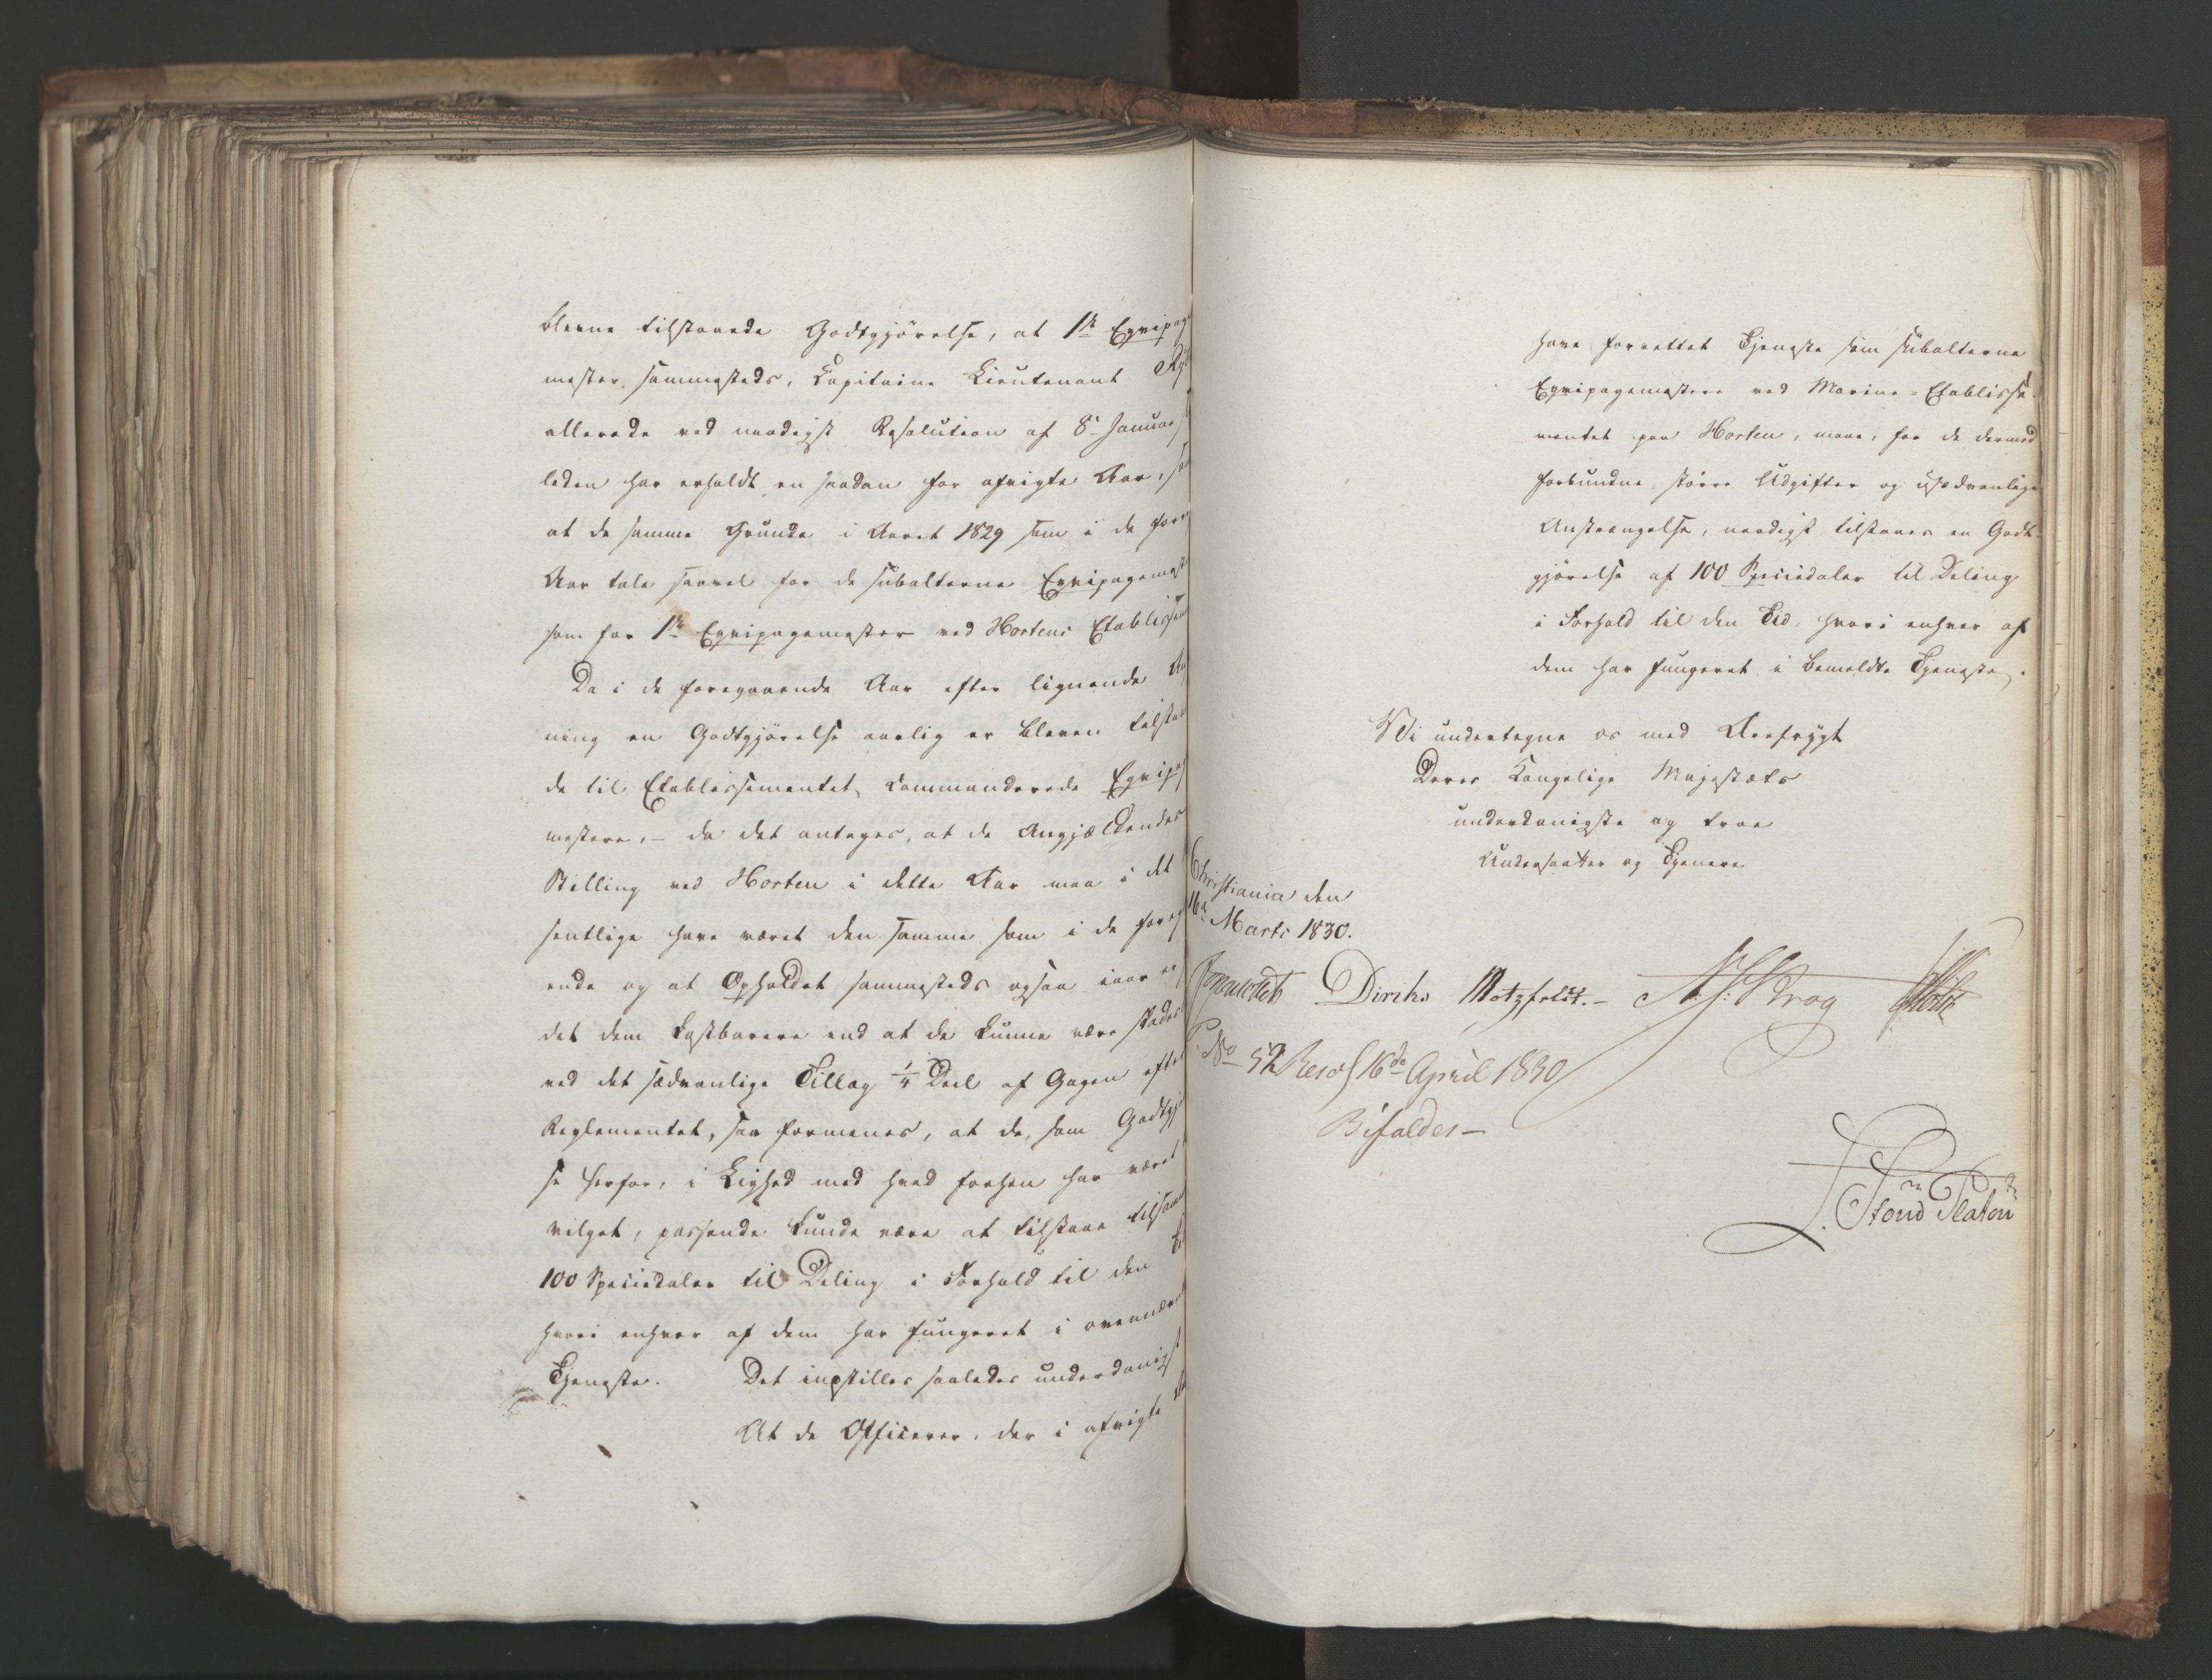 blevne tilstaaede Godtgjörelse, at 1ste Eqvipage
mester sammesteds, Capitaine Lieutenant
allerede ved naadigst Resolution af 8de Januar
leden har erholdt en saadan for afvigte Aar, samt
at de samme Grunde i Aaret 1829 som i de forrige
Aar tale saavel for de subalterne Eqvipagemestere
som for 1ste Eqvipagemester ved Hortens Etablissement
Da i de foregaaende Aar efter lignende An
ning en Godtgjörelse aarlig er bleven tilstaaet
de til Etablissementet commanderede Eqvipage
mestere, – da det antages, at de Angjældendes
Stilling ved Horten i dette Aar maa i det
sentlige have været den samme som i de foregaa
ende og at Opholdet sammesteds ogsaa iaar er
det dem kostbarere end at de kunne være skadesl
ved det sædvanlige Tillæg 1/4 Deel af Gagen efter
Reglementet, saa formenes, at de, som Godtgjörel
se herfor, i Lighed med hvad forhen har været
vilget, passende kunde være at tilstaae tilsammen
100 Speciedaler til Deling i Forhold til den Tid
hvori enhver af dem har fungeret i ovennævnte
Tjeneste. Det indstilles saaledes underdanigst
At de Officerer, der i afvigte Aar
have forrettet Tjeneste som subalterne
Eqvipagemestere ved Marine-Etablisse-
mentet paa Horten, maae, for de dermed
forbundne större Udgifter og usædvanlige
Anstrængelse, naadigst tilstaaes en Godt-
gjörelse af 100 Speciedaler til Deling
i Forhold til den Tid, hvori enhver af
dem har fungeret i bemeldte Tjeneste.
Vi undertegne os med Ærefrygt
Deres Kongelige Majestæts
underdanigste og troe
Undersaatter og Tjenere
Christiania den
16de Marts 1830.
Diriks Motzfeldt. – Krog
P. No 52 Resol 16de April 1830
Bifaldes –